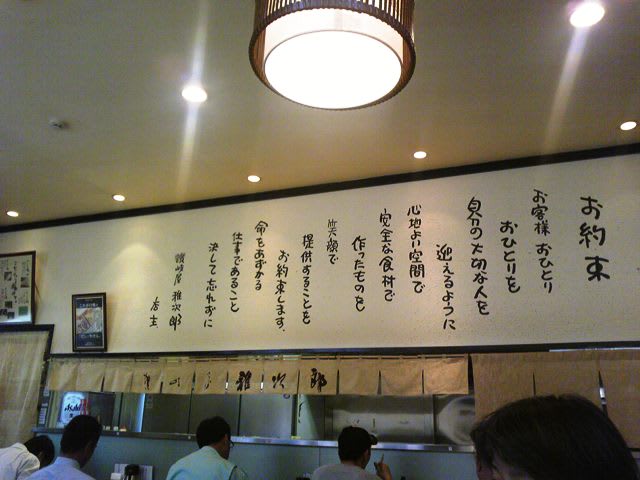 お約束
お客様 おひとり
おひとりを
自分の大切な人を
迎えるように
心地よい空間で
完全な食材で
作ったものを
笑顔で
提供することを
お約束します。
命をあずかる
仕事であること
決して忘れずに
讃岐屋 雅次郎
店主
雅次郎
Asahi